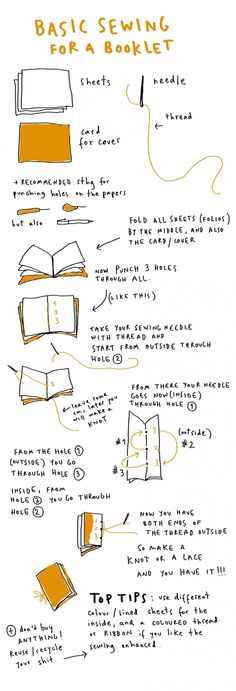 BASIC SEWING
FOR A BOOKLET
sheets
needle
thread
card
for cover
+ RECOMMENDED: sthg for
punching holes on the papers
but also
FOLD ALL SHEETS (FOLIOS)
BY THE MIDDLE, AND ALSO
THE CARD/COVER
NOW PUNCH 3 HOLES
THROUGH ALL.
(LIKE THIS)
1
2
3
TAKE YOUR SEWING NEEDLE
WITH THREAD AND
START FROM OUTSIDE THROUGH
HOLE 2
2
leave some
cm, later you
will make a
KNOT
FROM THERE YOUR NEEDLE
GOES NOW (INSIDE)
THROUGH HOLE 1
#1
(outside)
#2
#3
1
2
3
FROM THE HOLE 1
(OUTSIDE) YOU GO
THROUGH HOLE 3
INSIDE, FROM
HOLE 3 YOU GO THROUGH
HOLE 2
1
2
3
NOW YOU HAVE
BOTH ENDS OF
THE THREAD OUTSIDE
SO MAKE A
KNOT OR A LACE
AND YOU HAVE IT!!!
TOP TIPS: use different
colour/lined sheets for the
inside, and a coloured thread
or RIBBON if you like the
sewing enhanced.
+ don't buy
ANYTHING!
Reuse/recycle
your shit